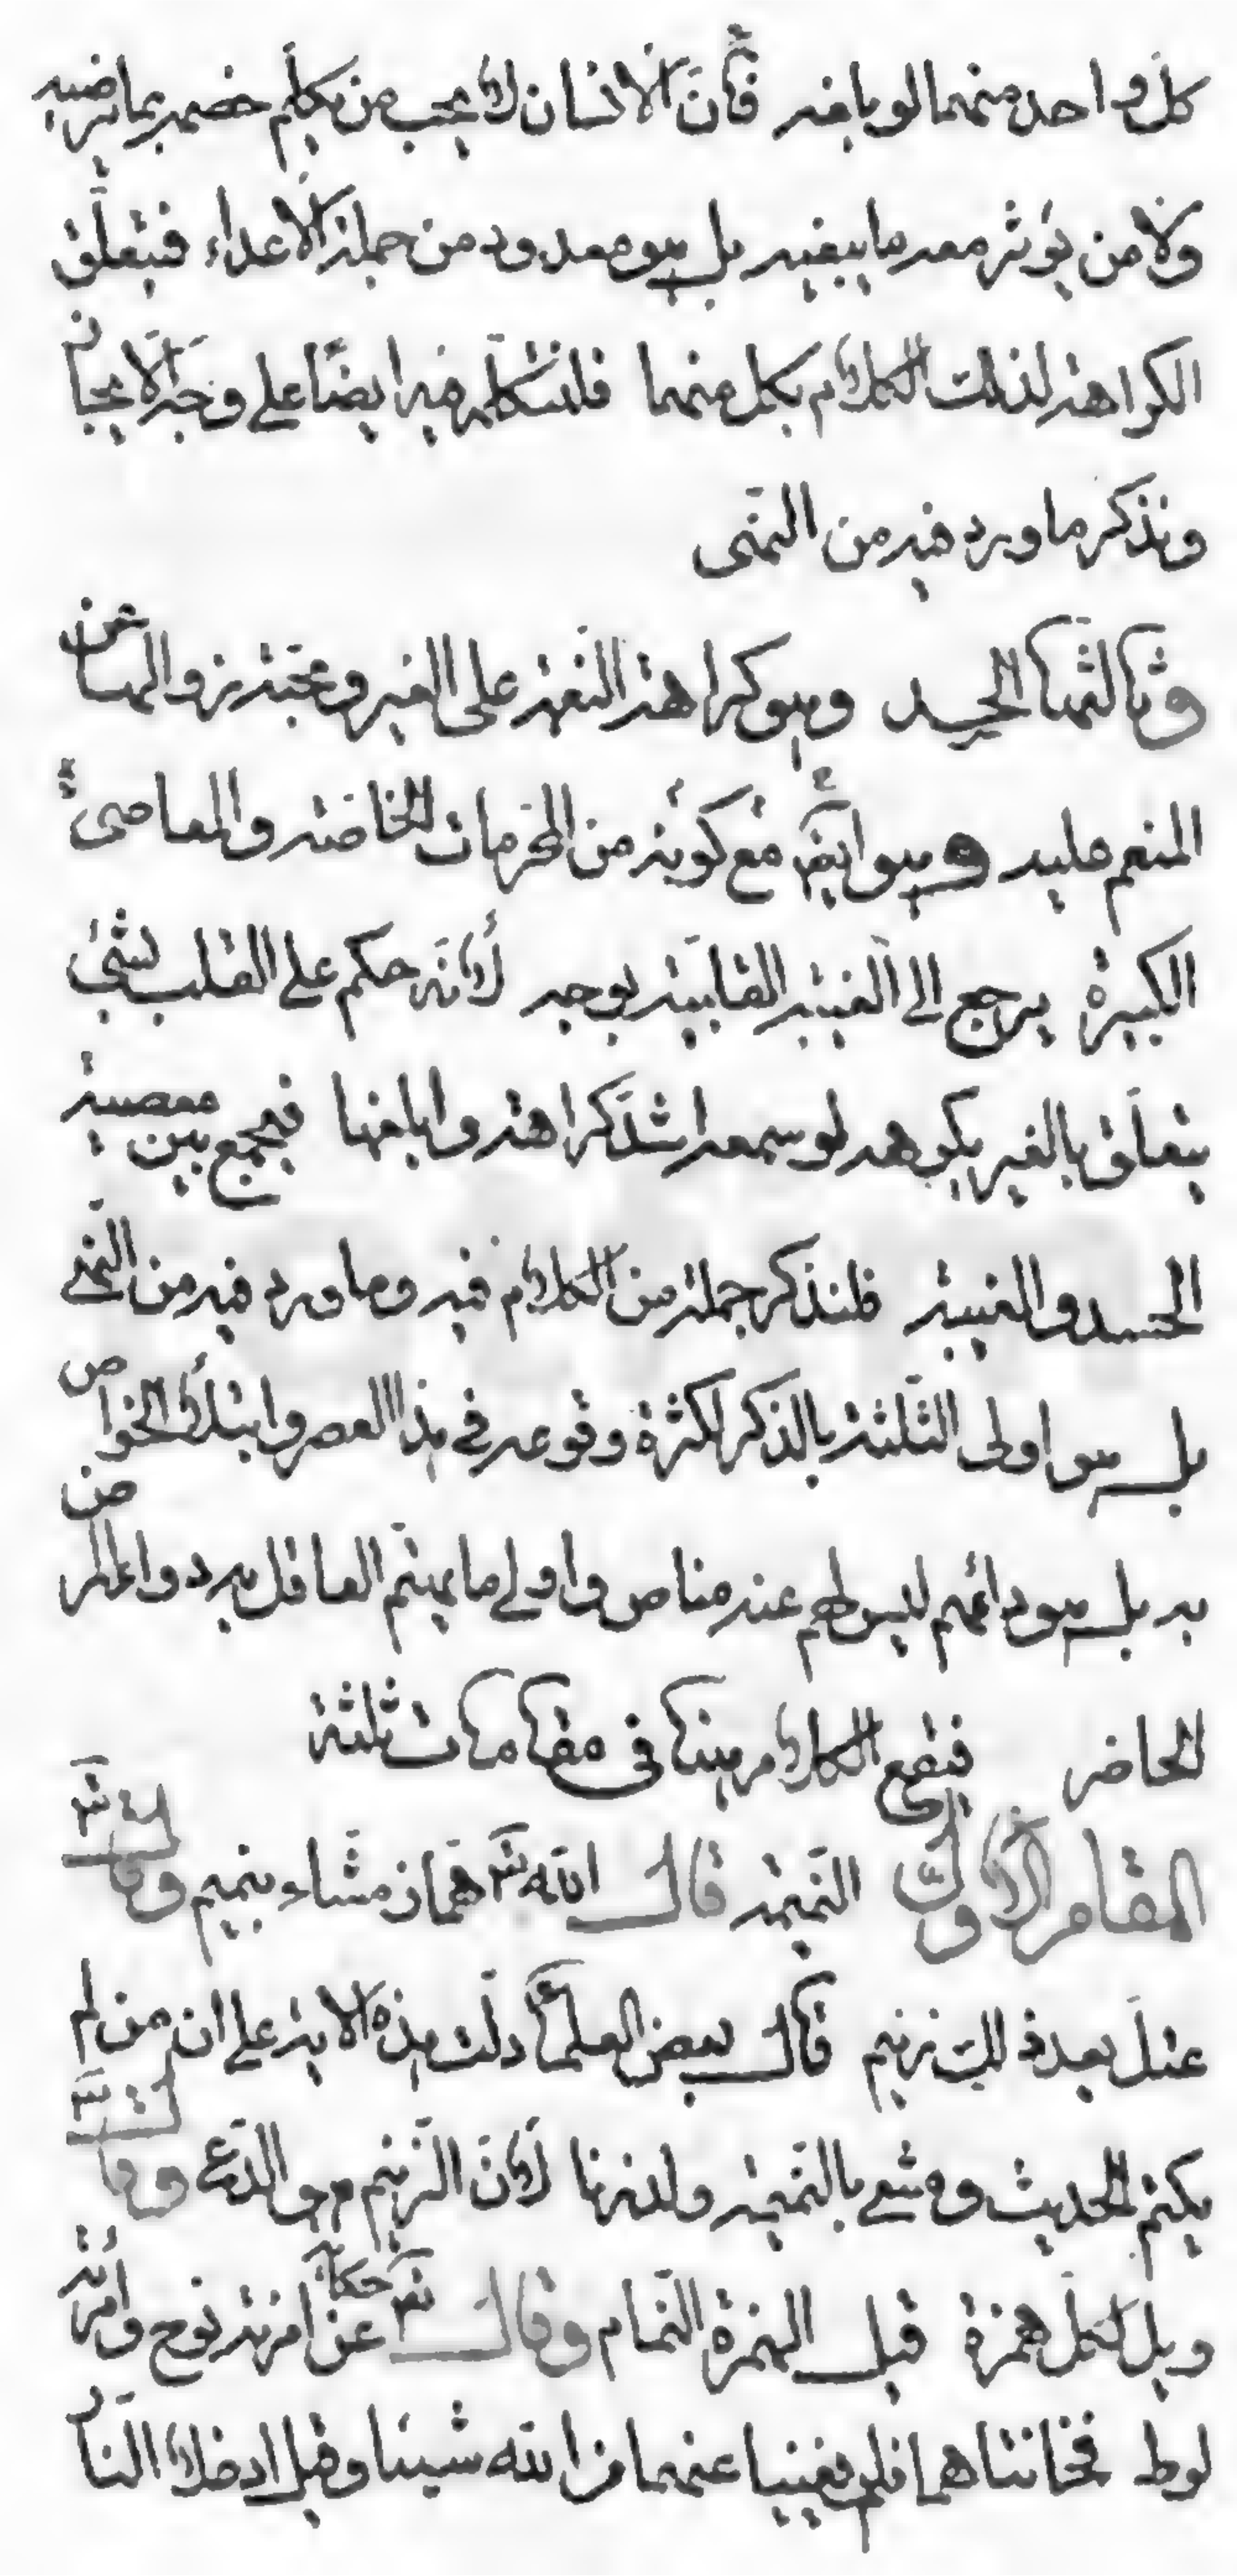 كل واحد منهما لو بلغه فأن الانسان لا يحب من يكلم خصمه بما يرضيه
ولا من يؤثر معه ما يبغيه بل هو معدود من جملة الاعداء فيتعلق
الكراهة لذلك الكلام بكل منهما فلنتكلم فيه ايضًا على وجه الايجاز
ونذكر ما ورد فيه من النهى
وثالثها الحسد وهو كراهة النعمة على الغير ومحبة زوالها عن
المنعم عليه وهو ايضًا مع كونه من المحرمات الخاصة والمعاصى
الكبيرة يرجع الى الغيبة القلبية بوجه لأنه حكم على القلب بشئ
يتعلق بالغير يكرهه لو سمعه اشد كراهة وابلغها فيجمع بين معصية
الحسد والغيبة فلنذكر جملة من الكلام فيه وما ورد فيه من النهى
بل هو اولى الثلثة بالذكر لكثرة وقوعه في هذا العصر وابتلاء الخواص
به بل هو دائهم ليس لهم عنه مناص واولى ما يهتم العاقل به دواء المرض
الحاضر فيقع الكلام هيهنا فى مقامات ثلثة
المقام الاول النميمة قال الله تعالى هماز مشاء بنميم وقال تعالى
عتل بعد ذلك زنيم قال بعض العلماء دلت هذه الاية على ان من لم
يكتم الحديث ومشى بالنميمة ولد زنا لأن الزنيم هو الدعى وقال تعالى
ويل لكل همزة قيل الهمزة النمام وقال تعالى حكاية عن امرئة نوح وامرئة
لوط فخانتاهما فلم يغنيا عنهما من الله شيئا وقيل ادخلا النار